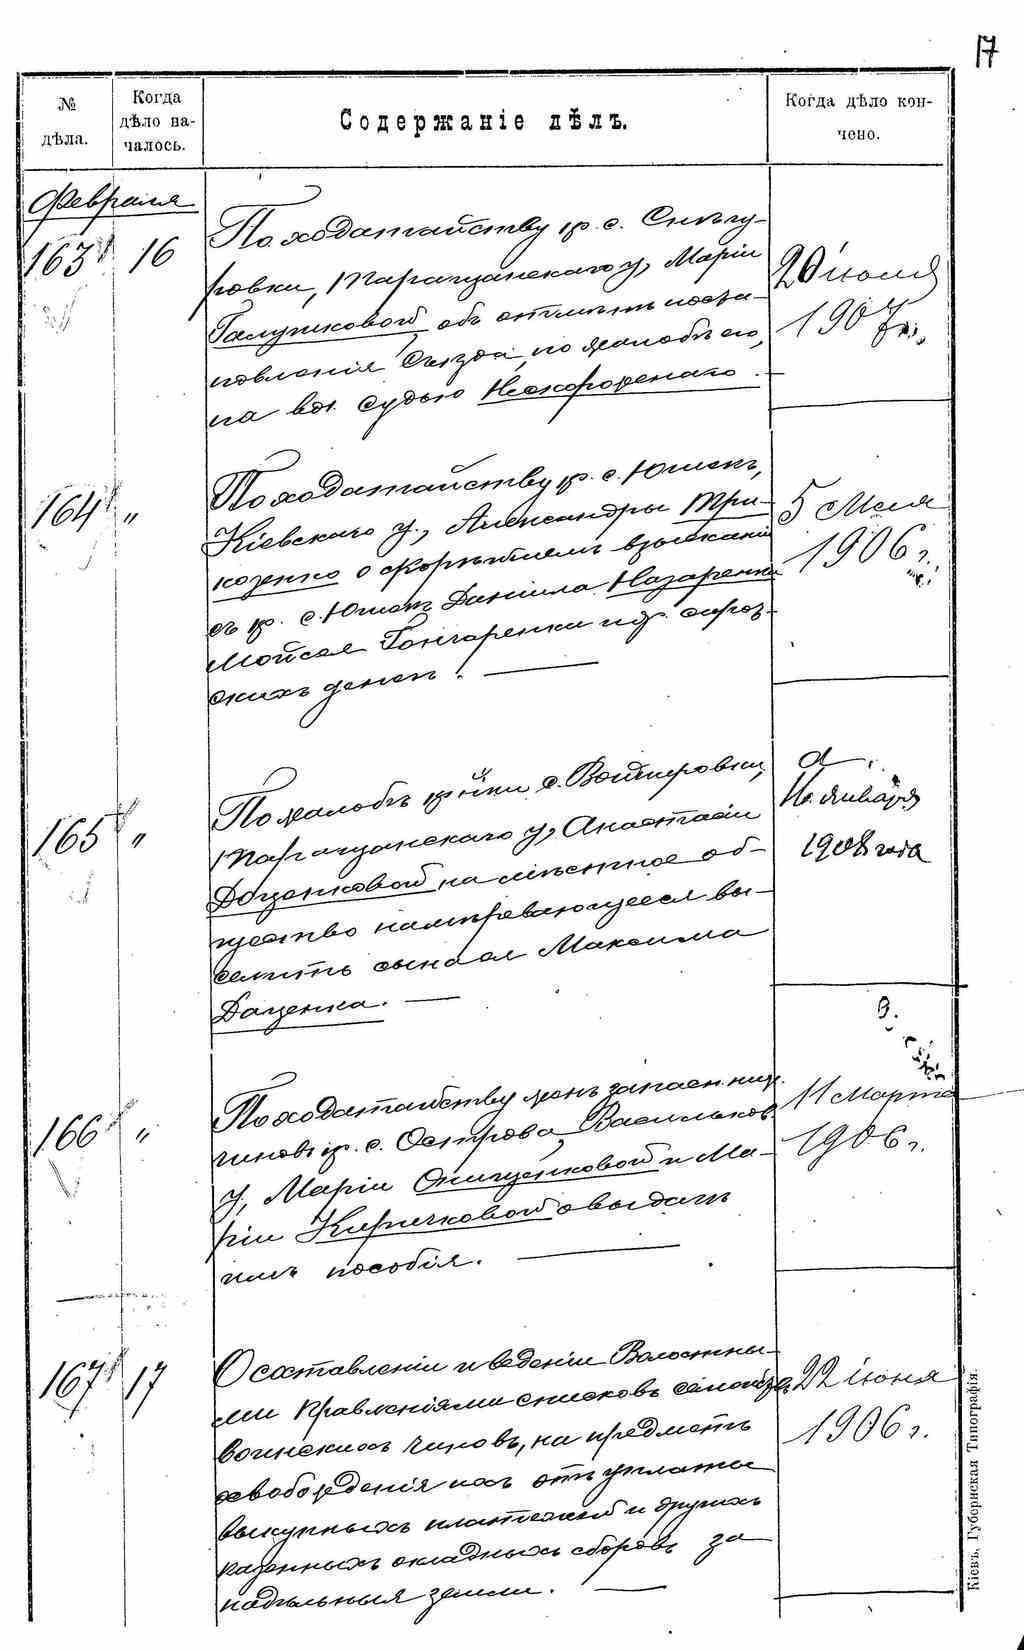 17
№ дѣла.
Когда дѣло на-
чалось.
Содержаніе дѣлъ.
Когда дѣло кон-
чено.
Февраля
163 16
По ходатайству кр. с. Снѣгу-
ровки, Таращанскаго у, Маріи
Галушковой объ отмѣнѣ поста-
новленія Съѣзда, по жалобѣ ея,
на вол. судью Некофоренаго.
20 іюля
1907 г.
164 "
По ходатайству кр. с. Юшек,
Кіевскаго у., Александры Три-
козенко о скорѣйшемъ взысканіи
съ кр. с. Юшек Даніила Назаренки
Мойсея Гончаренки и др. сирот-
скихъ денегъ.
5 Мая
1906 г.
165 "
По жалобѣ кр-йки с. Войтеровки,
Таращанскаго у, Анастасіи
Доценковой на мѣстное об-
щество намѣревающееся вы-
селить сына ея Максима
Даценка.
Января
1908 года
166 "
По ходатайству женъ запасн. ниж.
чиновъ кр. с. Острова, Васильков.
у, Маріи Онищенковой и Ма-
ріи Кириченковой о выдачѣ
имъ пособія.
11 Марта
1906 г.
167 17
О составленіи и веденіи Волостны-
ми Правленіями списковъ
воинскихъ чиновъ, на предметъ
освобожденія ихъ отъ уплаты
выкупныхъ платежей и другихъ
казенныхъ окладныхъ сборовъ за
надѣльныя земли.
22 іюня
1906 г.
Кіевъ, Губернская Типографія.